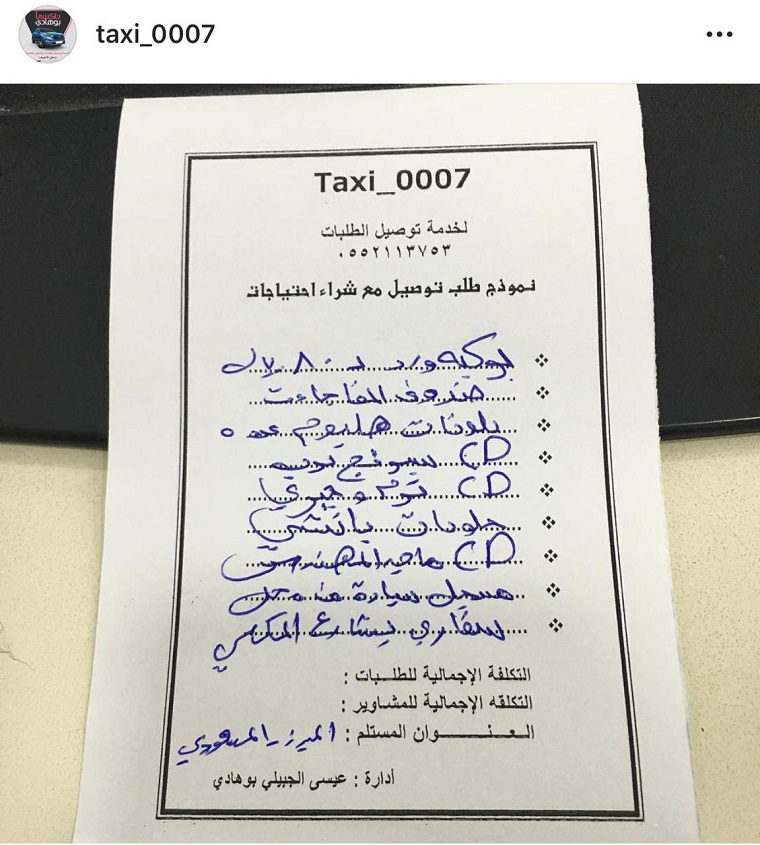 تاكسي
بوهادي
taxi_0007
Taxi_0007
لخدمة توصيل الطلبات
٠٥٥٢١١٣٧٥٣
نموذج طلب توصيل مع شراء احتياجات
بوكيه ورد بـ ٨٠ ريال
صندوق المفاجاءت
بلونات هليوم عدد ٥
CD سبونج بوب
CD توم وجيري
حلويات باتشي
CD ماجد المهندس
سيارة من محل
سفاري بشارع
التكلفة الإجمالية للطلـبات :
التكلقه الإجمالية للمشاوير :
العـنـــــوان المستلم : المبرز المسعودي
أدارة : عيسى الجبيلي بوهادي